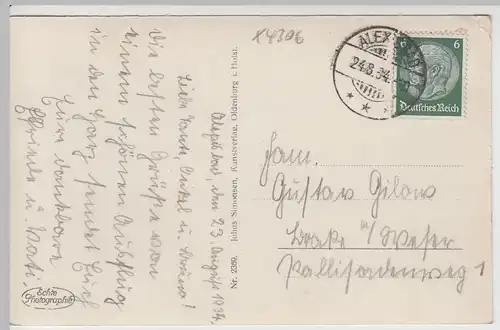 x4306
Alexisbad, den 23. August 1934.
Liebe Tante, Onkel u.
die besten Grüße von
einem schönen Ausflug
in den Harz sendet Euch
Eure dankbare
u. Vati.
Echte
Photographie
Nr. 2369. Julius Simonsen, Kunstverlag, Oldenburg i. Holst.
ALEX
24.8.34
6 6
Deutsches Reich
Fam.
Gustav Gilow
Brake i/Weser
Pallisadenweg 1